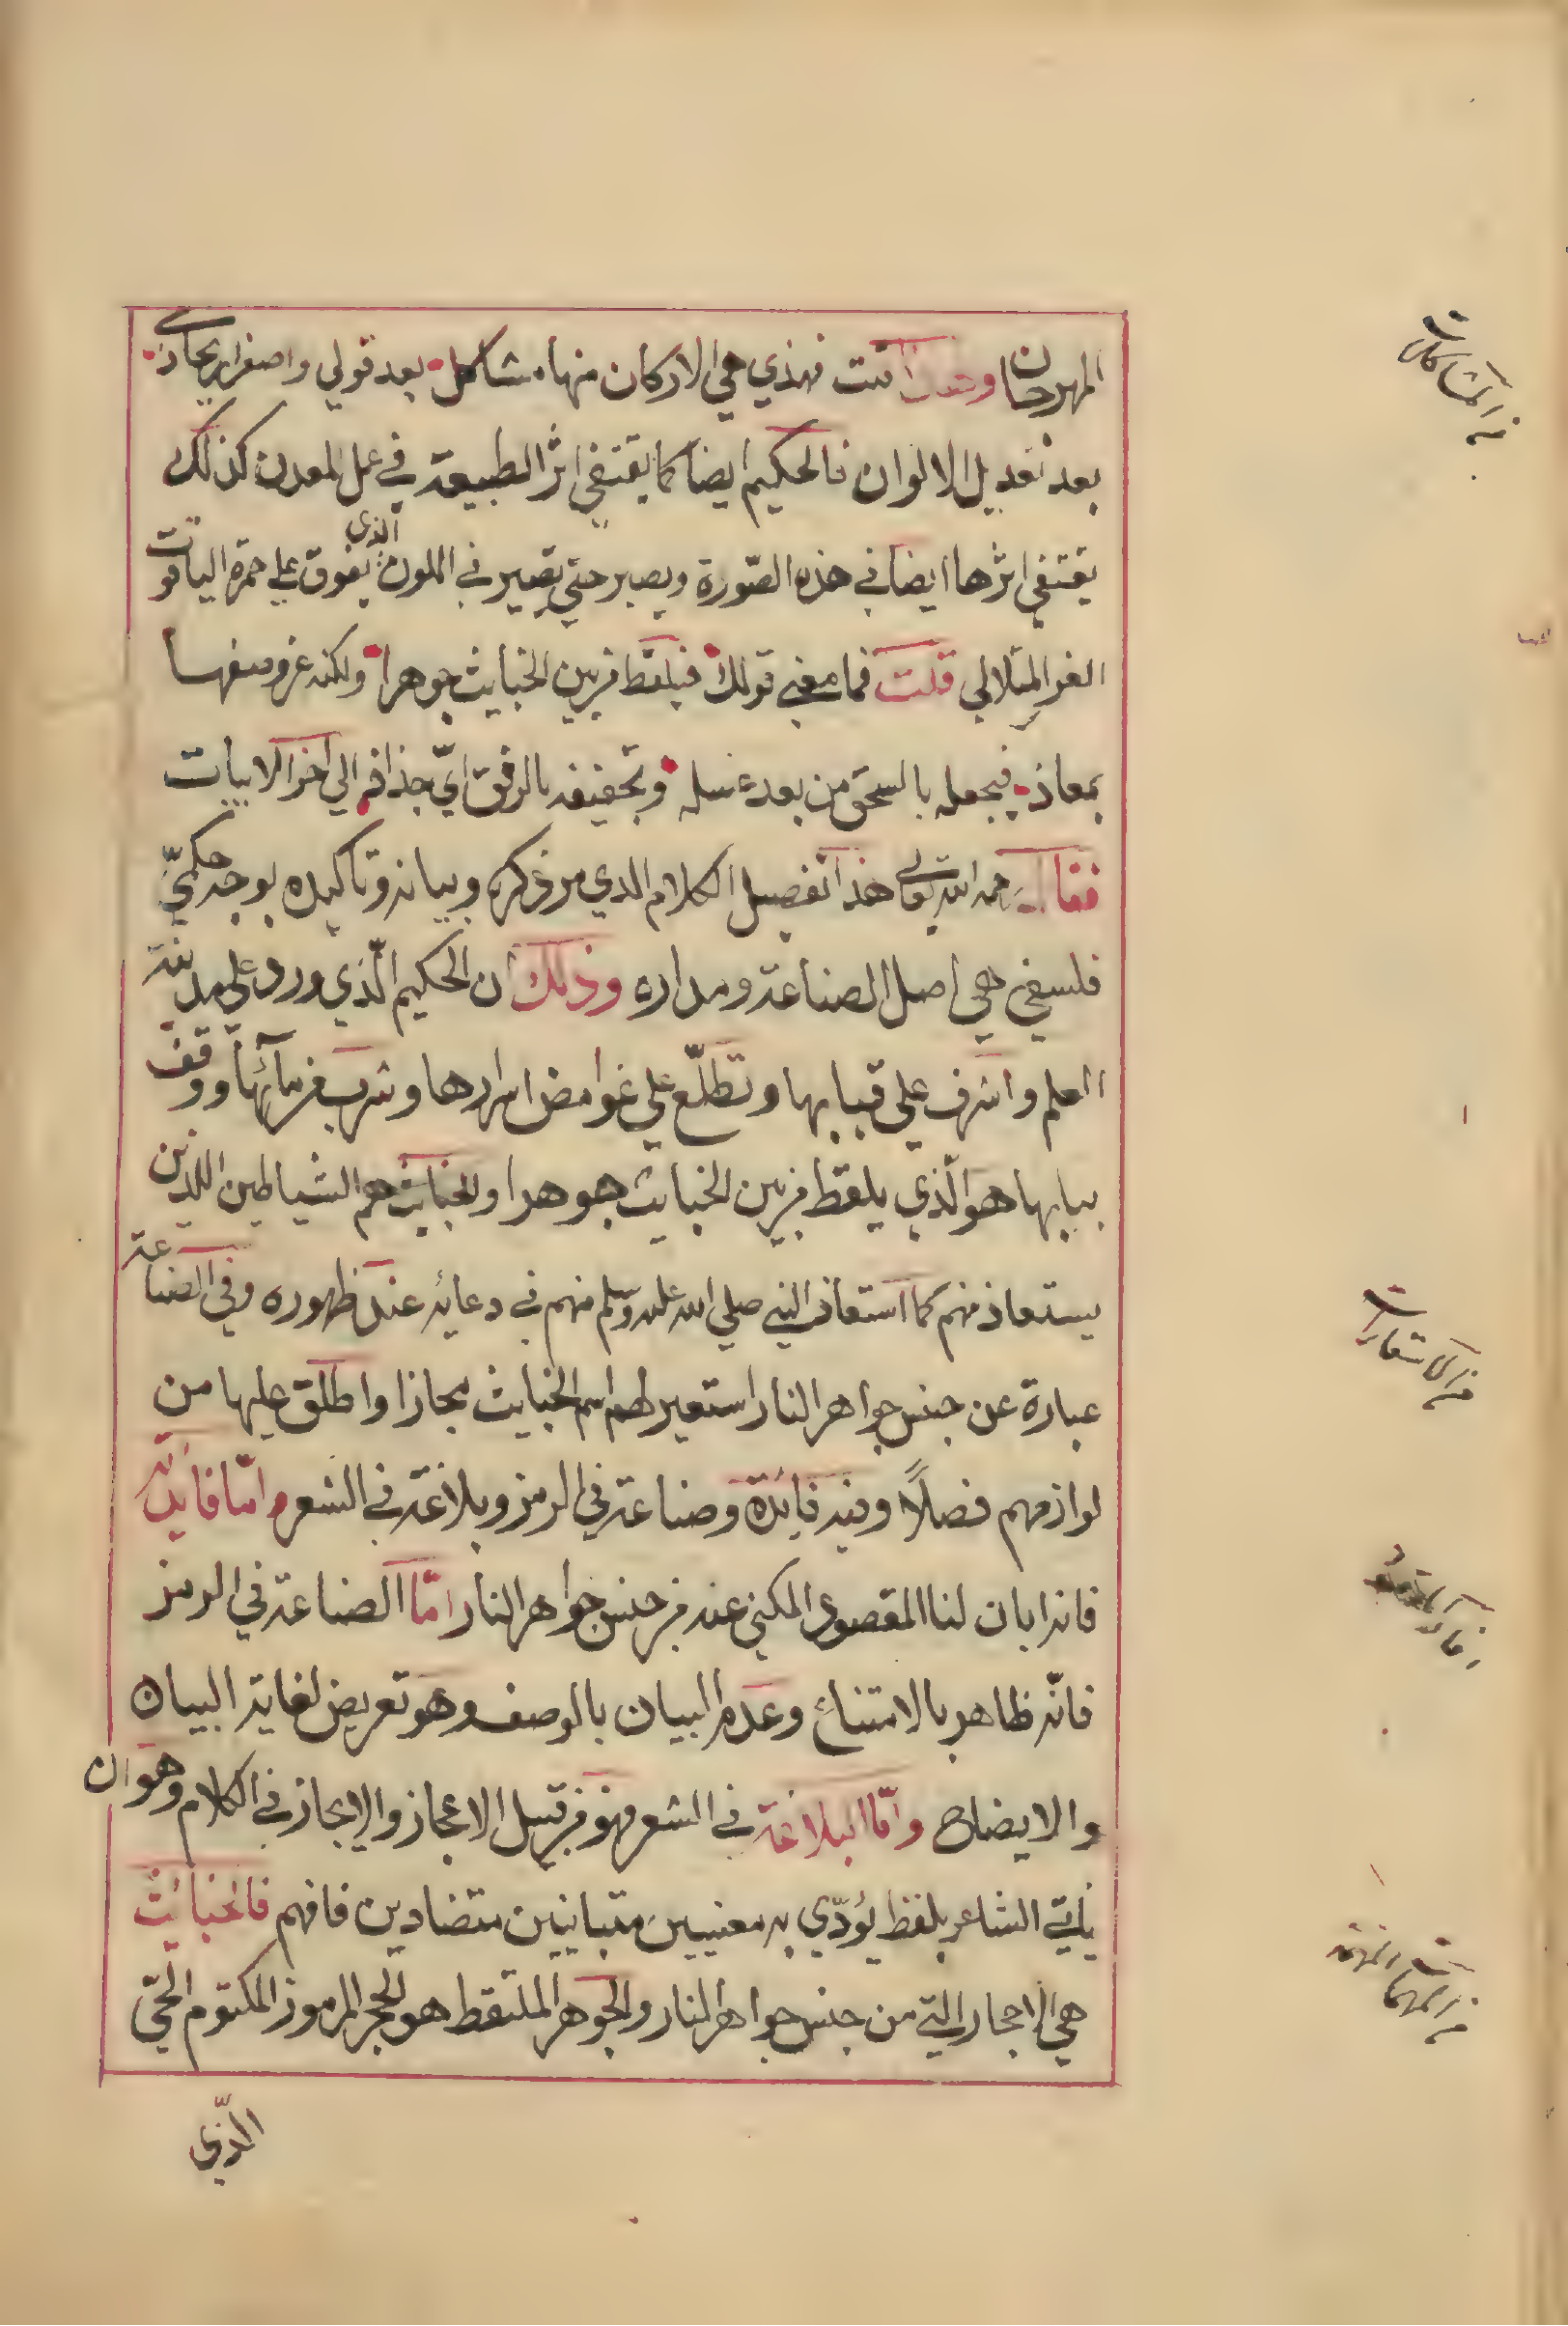 المهرجان فهذي هي الاركان منها مشاكل بعد قولي واصفرار يحاذي
بعد تعديل الالوان فالحكيم ايضا كما يقتفي اثر الطبيعة في عمل المعدن كذلك
يقتفي اثرها ايضا في هذه الصّورة ويصير حتي يصير في اللون الذي يفوق علي حمرة الياقوت
الغر المتلالي قلت فما معني قولك فيلقط من بين الخبايث جوهرا ولكنه عن وصفها
بمعاذ فيجعله بالسحق من بعد غسله وتجفيفه بالرفق ايّ جذاذ الي اخر الابيات
فقال رحمه الله تعالي هذا تفصيل الكلام الذي مر ذكره وبيانه وتاكيده بوجه حكميّ
فلسفي هي اصل الصناعة ومداره وذلك ان الحكيم الّذي ورد علي مدينة
العلم واشرف علي قبابها وتطلّع علي غوامض اسرارها وشرب من مآئها ووقف
ببابها هو الّذي يلقط من بين الخبايث جوهرا والخبايث هم الشياطين اللذين
يستعاذ منهم كما استعاذ النبي صلي الله عليه وسلم منهم في دعائه عند ظهوره وفي الصناعة
عبارة عن جنس جواهر النار استعير لهم اسم الخبايث مجازا واطلق عليها من
لوازمهم فصلاً وفيه فائدة وصناعة في الرمز وبلاغة في الشعر امّا فايدته
فانه ابان لنا المقصود المكني عنه من جنس جواهر النار امّا الصناعة في الرمز
فانّه ظاهر بالامتناع وعدم البيان بالوصف وهو تعريض لغاية البيان
والايضاح وامّا البلاغة في الشعر فهو من قبيل الاعجاز والايجاز في الكلام وهو ان
يأتي الشاعر بلفظ يؤدّي به معنيين متباينين متضادين فافهم فالخبايث
هي الاحجار التي من جنس جواهر النار والجوهر الملتقط هو الحجر المرموز المكتوم الحي
الّذي